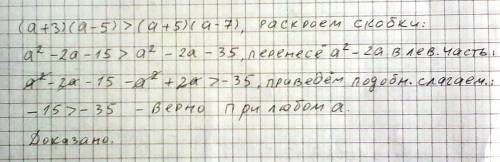 (a+3)(a-5)>(a+5)(a-7), раскроем скобки:
a²-2a-15>a²-2a-35, перенесё a²-2a в лев. часть:
a²-2a-15-a²+2a>-35, приведём подобн. слагаем.:
-15>-35 - верно при любом a.
Доказано.